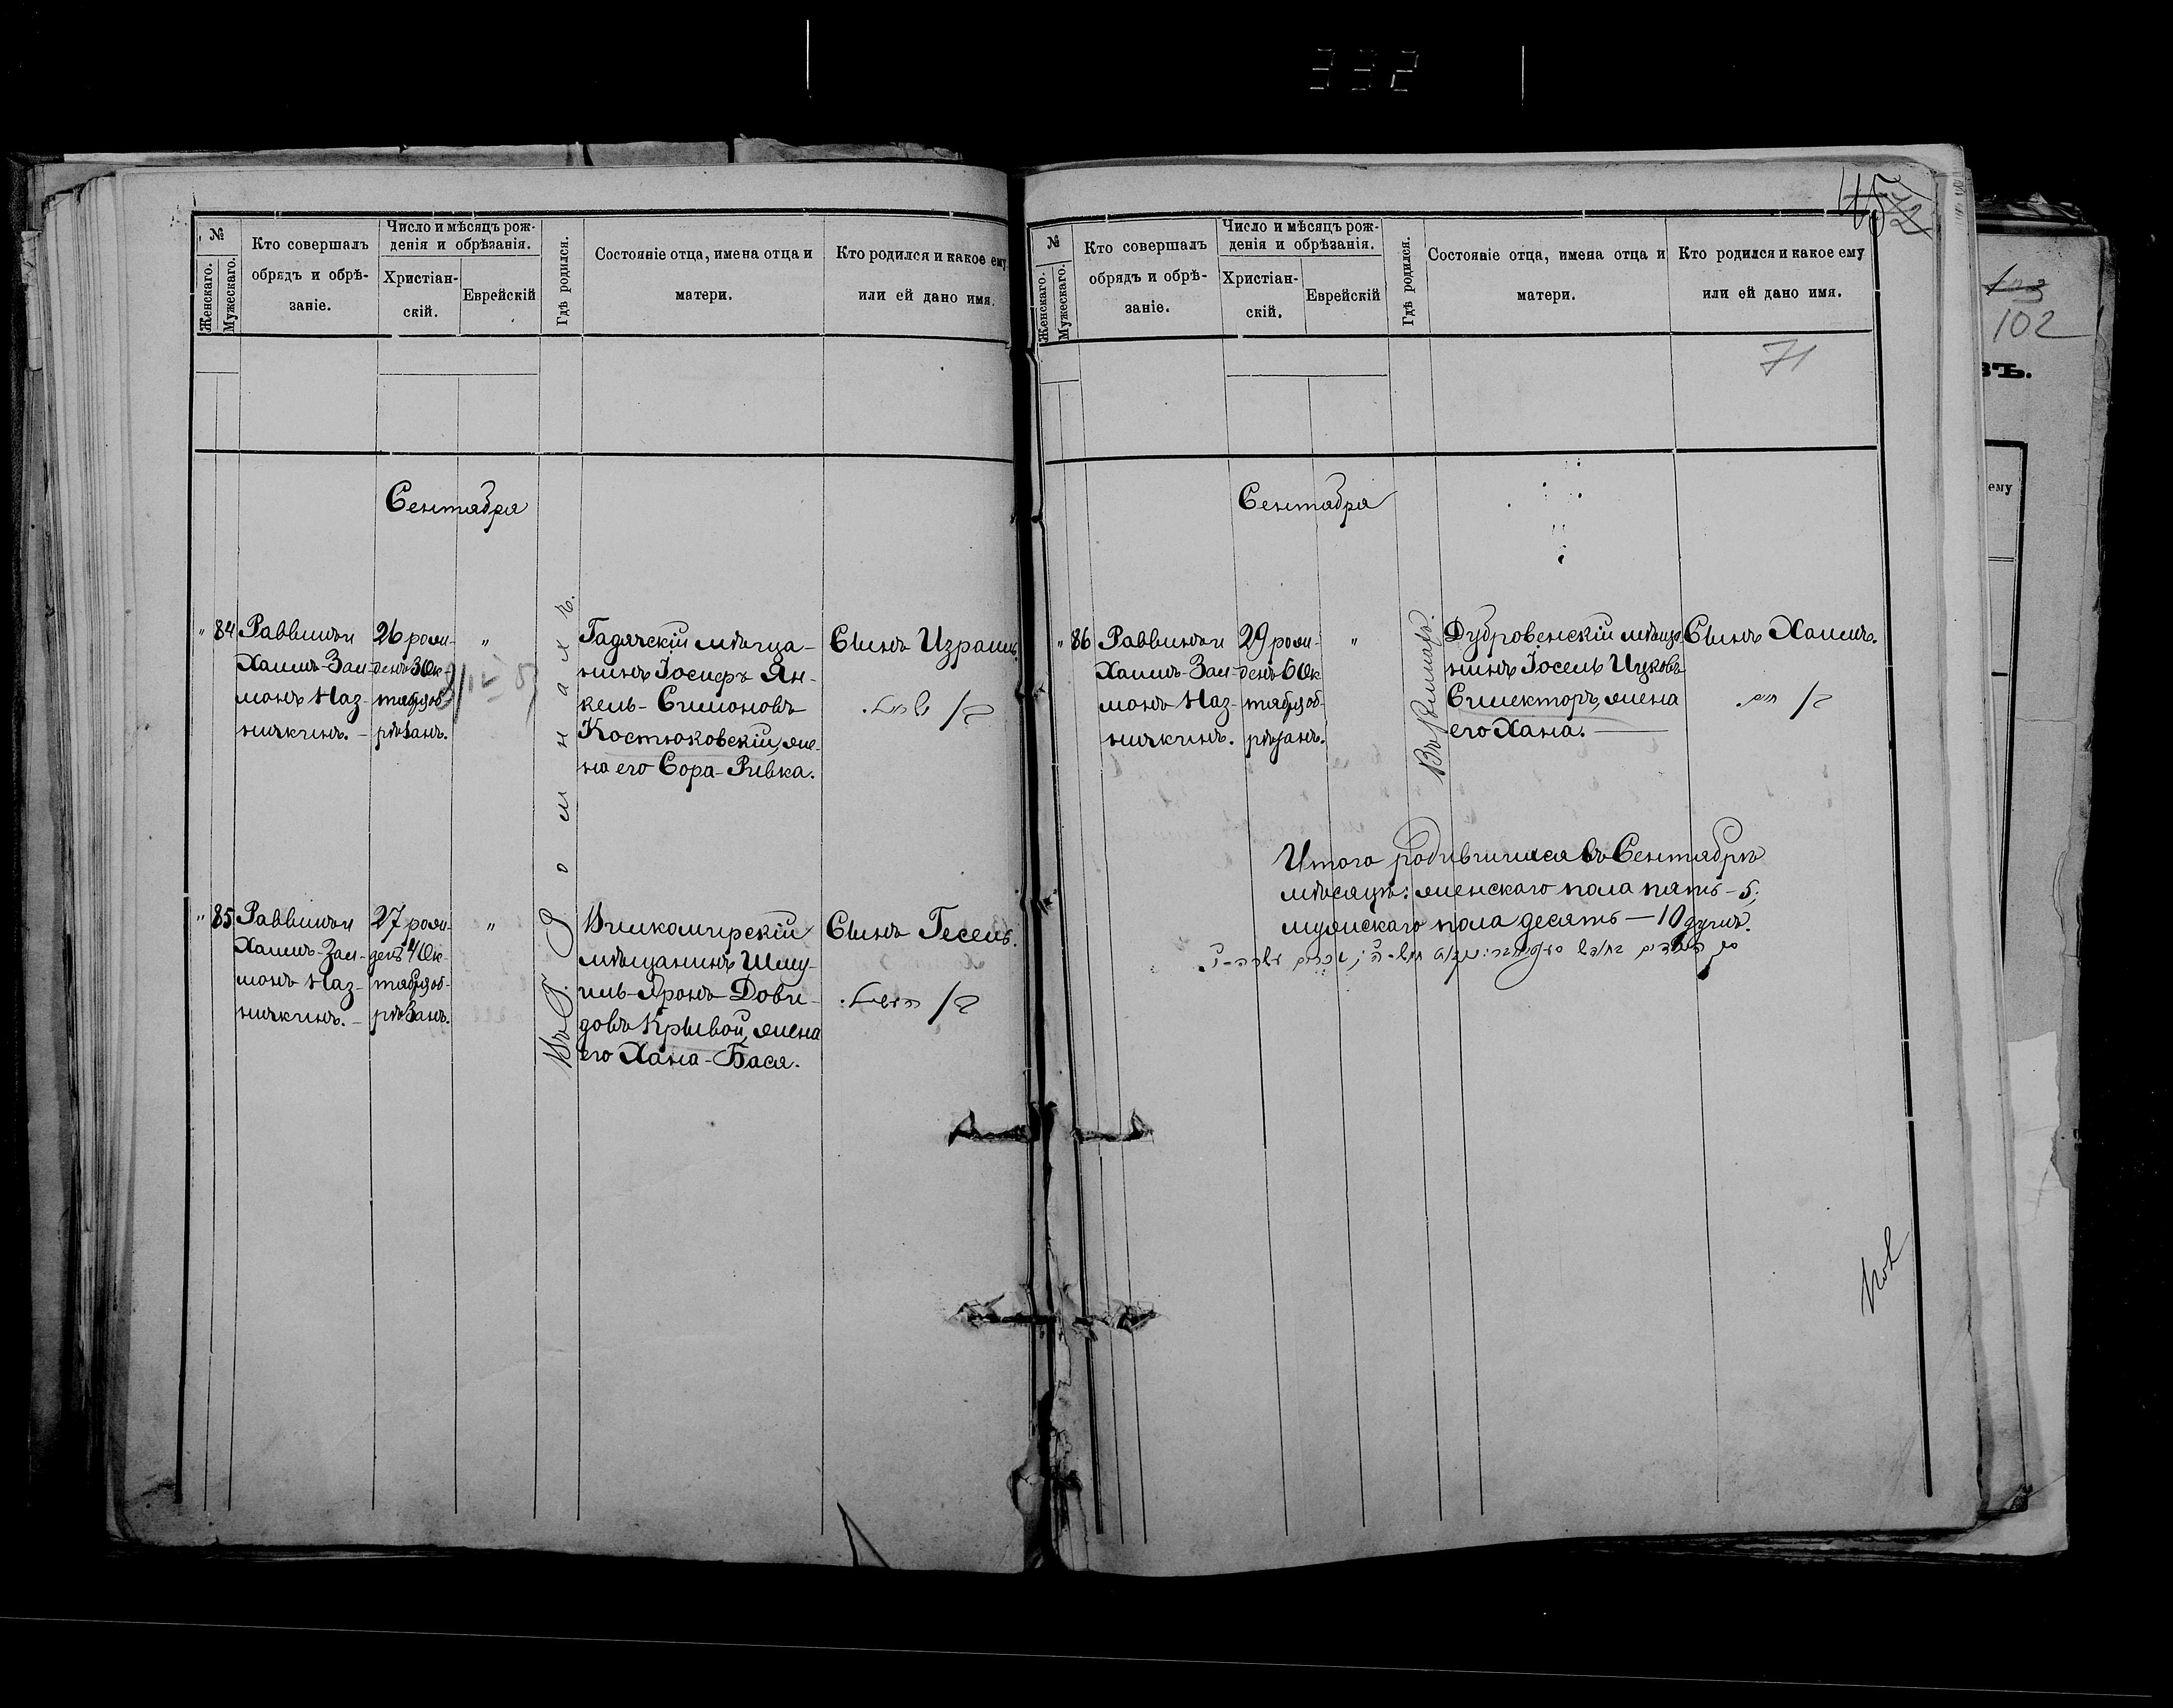 332
№
Женскаго.
Мужескаго.
Кто совершалъ
обрядъ и обрѣ-
заніе.
Число и мѣсяцъ рож-
денія и обрѣзанія.
Христіан-
скій.
Еврейскій
Гдѣ родился.
Состояніе отца, имена отца и
матери.
Кто родился и какое ему
или ей дано имя.
Сентября
" 84
Раввинъ
Хаимъ-Зал-
монъ Наз-
нижинъ. —
26 рож-
денъ 3 Ок-
тября об-
рѣзанъ.
"
Въ Ромнахъ.
Гадячскій мѣща-
нинъ Іосифъ Ян-
кель-Симоновъ
Костюковскій, же-
на его Сора-Ривка.
Сынъ Израиль.
ז/ ישראל.
" 85
Раввинъ
Хаимъ-Зал-
монъ Наз-
нижинъ. —
27 рож-
денъ 4 Ок-
тября об-
рѣзанъ.
"
Вилкомирскій
мѣщанинъ Шму-
иль-Аронъ Дови-
довъ Кривой, жена
его Хана-Бася.
Сынъ Гесель.
№
Женскаго.
Мужескаго.
Кто совершалъ
обрядъ и обрѣ-
заніе.
Число и мѣсяцъ рож-
денія и обрѣзанія.
Христіан-
скій.
Еврейскій
Гдѣ родился.
Состояніе отца, имена отца и
матери.
Кто родился и какое ему
или ей дано имя.
71
Сентября
" 86
Раввинъ
Хаимъ-Зал-
монъ Наз-
нижинъ.
29 рож-
денъ 6 Ок
тября об-
рѣзанъ.
"
Дубровенскій мѣща
нинъ Іосель Ицковъ
Спекторъ, жена
его Хана. —
Сынъ Хаимъ.
ז/ חיים.
Итого родившихся въ Сентябрѣ
мѣсяцѣ: женскаго пола пять – 5;
мужскаго пола десять — 10 душъ.
102
въ.
ему